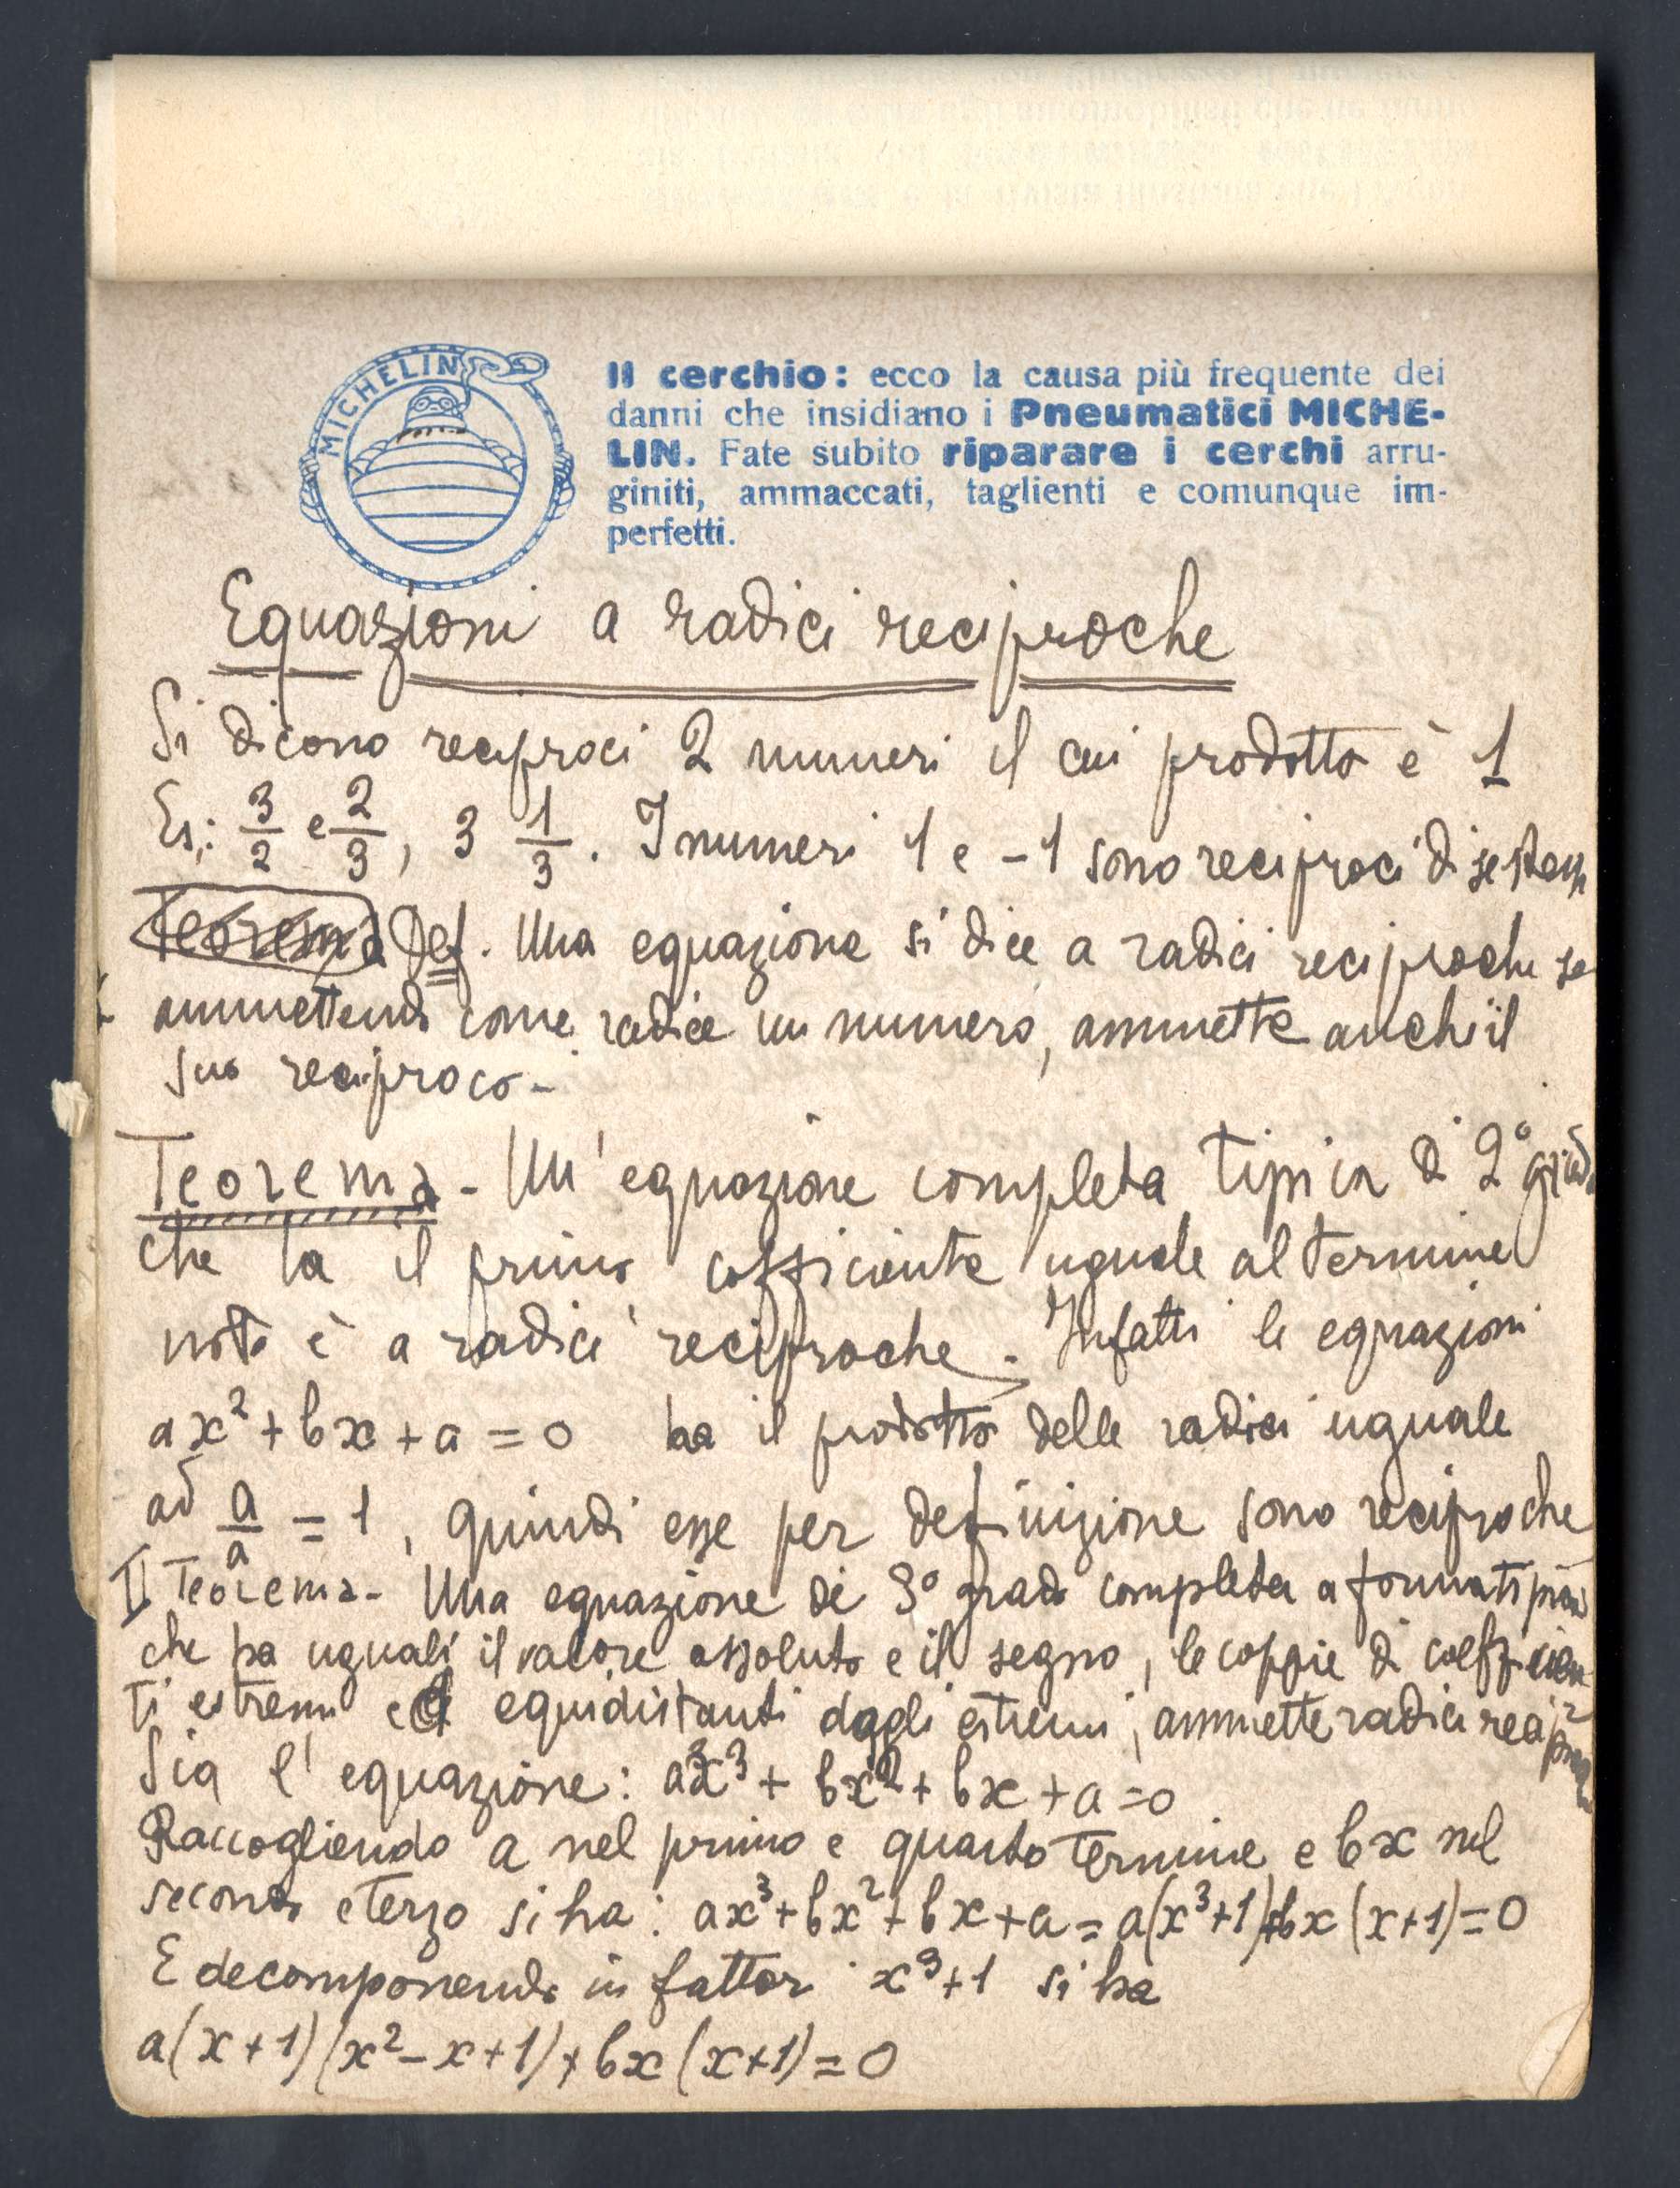 MICHELIN
Il cerchio: ecco la causa più frequente dei
danni che insidiano i Pneumatici MICHE-
LIN. Fate subito riparare i cerchi arru-
giniti, ammaccati, taglienti e comunque im-
perfetti.
Equazioni a radici reciproche
Si dicono reciproci 2 numeri il cui prodotto è 1
Es: 3/2 e 2/3, 3 1/3. I numeri 1 e -1 sono reciproci di se stessi
Teorema Def. Una equazione si dice a radici reciproche se
ammettendo come radice un numero, ammette anche il
suo reciproco-
Teorema - Un'equazione completa tipica di 2° grado
che ha il primo cofficiente uguale al termine
noto è a radici reciproche. Infatti le equazioni
ax² + bx + a = 0 ha il prodotto delle radici uguale
ad a/a = 1, quindi esse per definizione sono reciproche
II Teorema- Una equazione di 3° grado completa a forma tipica
che ha uguali il valore assoluto e il segno, le coppie di coefficien
ti estremi ed equidistanti dagli estremi, ammette radici reciproche
Sia l'equazione: ax³ + bx² + bx + a = 0
Raccogliendo a nel primo e quarto termine e bx nel
secondo e terzo si ha: ax³ + bx² + bx + a = a(x³+1)+bx(x+1)=0
E decomponendo in fattori x³+1 si ha
a(x+1)(x²-x+1)+bx(x+1)=0